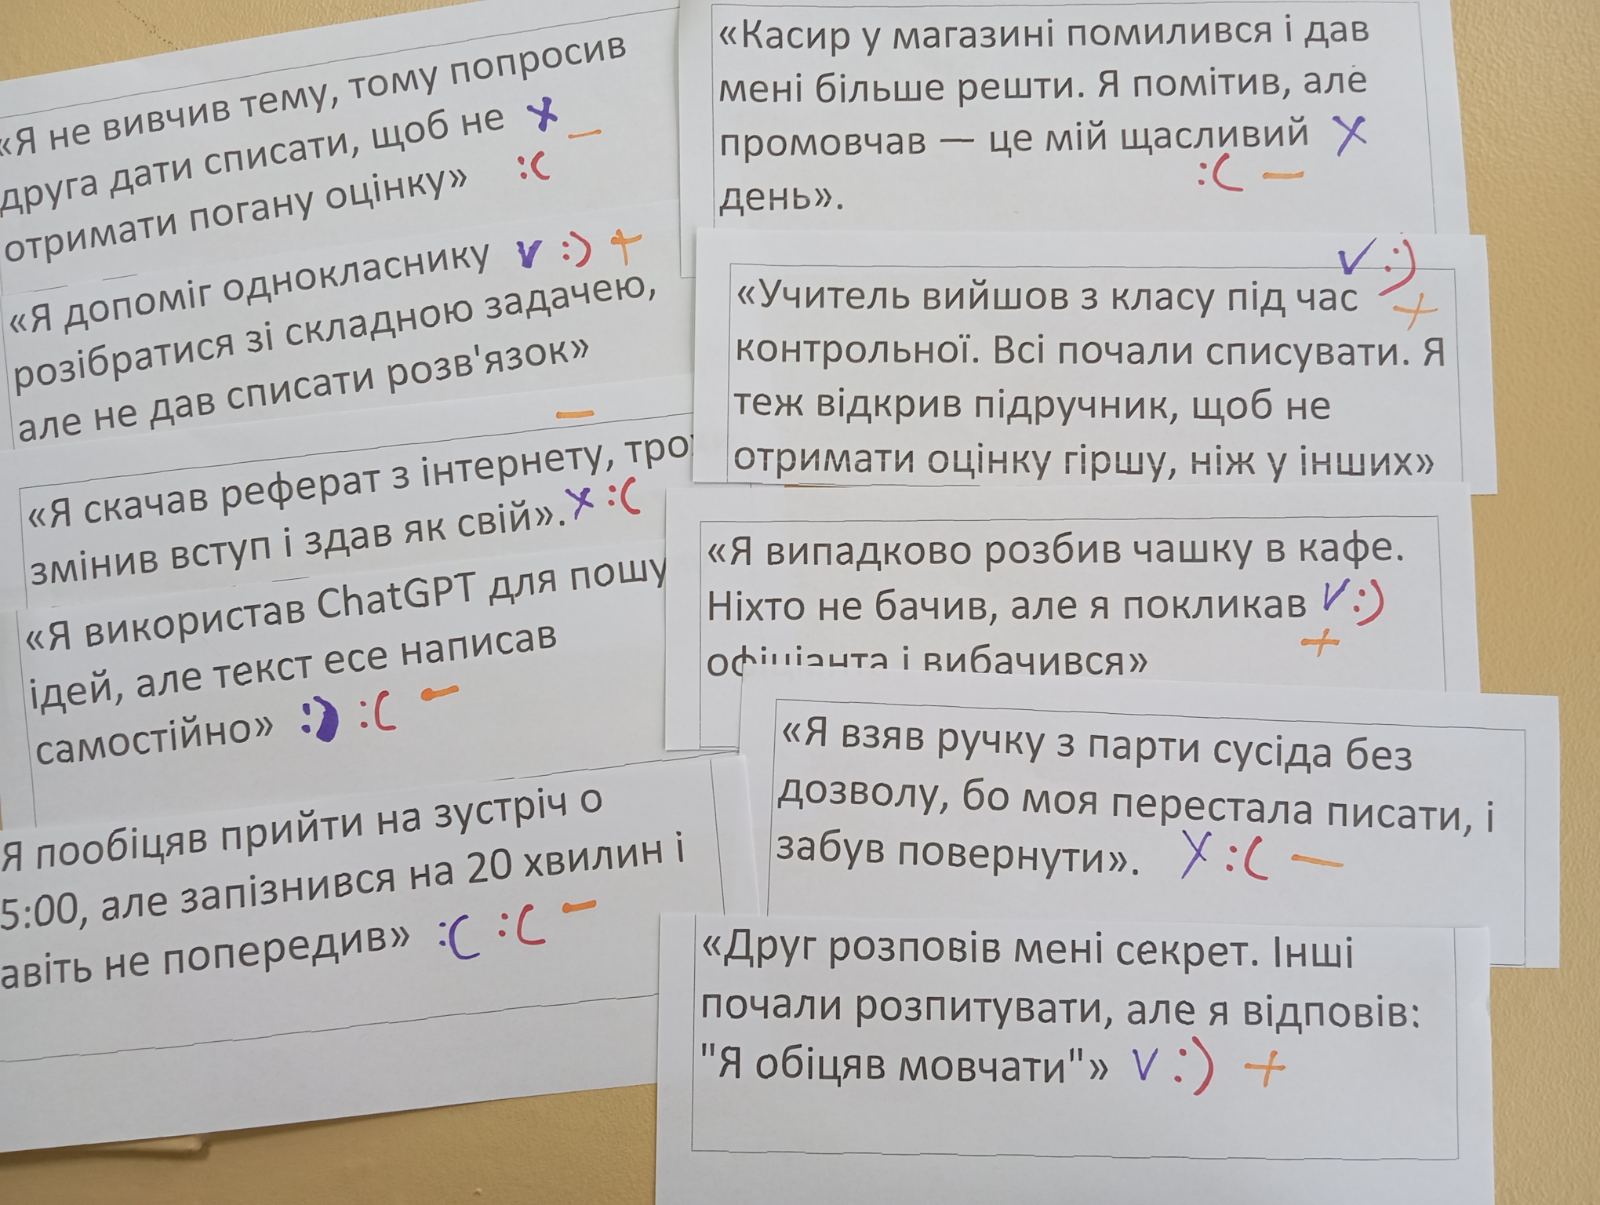 «Я не вивчив тему, тому попросив
друга дати списати, щоб не x –
отримати погану оцінку» :(
«Я допоміг однокласнику v :) +
розібратися зі складною задачею,
але не дав списати розв'язок»
–
«Я скачав реферат з інтернету,
змінив вступ і здав як свій». x :(
«Я використав ChatGPT для
ідей, але текст есе написав
самостійно» :) :( –
Я пообіцяв прийти на зустріч о
5:00, але запізнився на 20 хвилин і
авіть не попередив» :( :( –
«Касир у магазині помилився і дав
мені більше решти. Я помітив, але
промовчав — це мій щасливий x
день». :( –
v :)
«Учитель вийшов з класу під час +
контрольної. Всі почали списувати. Я
теж відкрив підручник, щоб не
отримати оцінку гіршу, ніж у інших»
«Я випадково розбив чашку в кафе.
Ніхто не бачив, але я покликав v :)
офіціанта і вибачився» +
«Я взяв ручку з парти сусіда без
дозволу, бо моя перестала писати, і
забув повернути». x :( –
«Друг розповів мені секрет. Інші
почали розпитувати, але я відповів:
"Я обіцяв мовчати"» v :) +